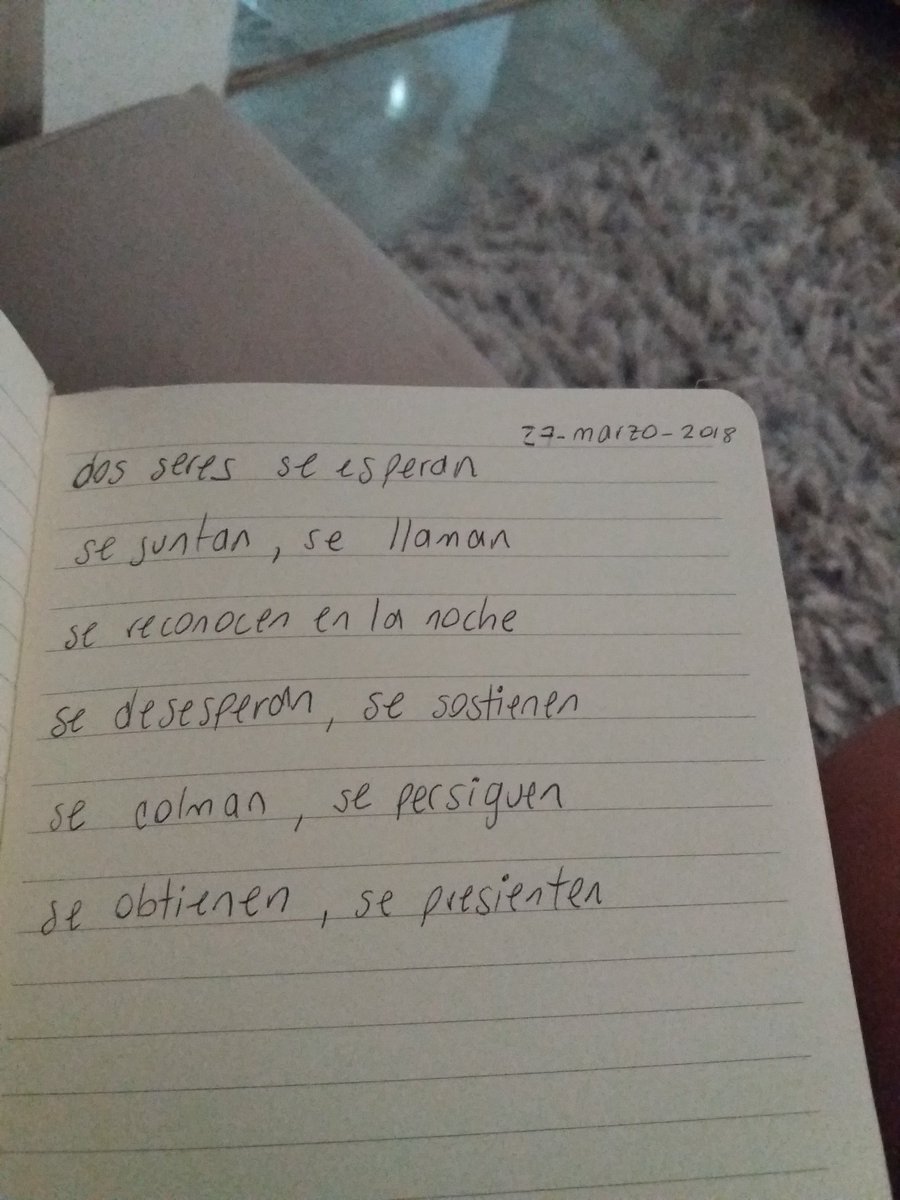 27-marzo-2018
dos seres se esperan
se juntan, se llaman
se reconocen en la noche
se desesperan, se sostienen
se colman, se persiguen
se obtienen, se presienten